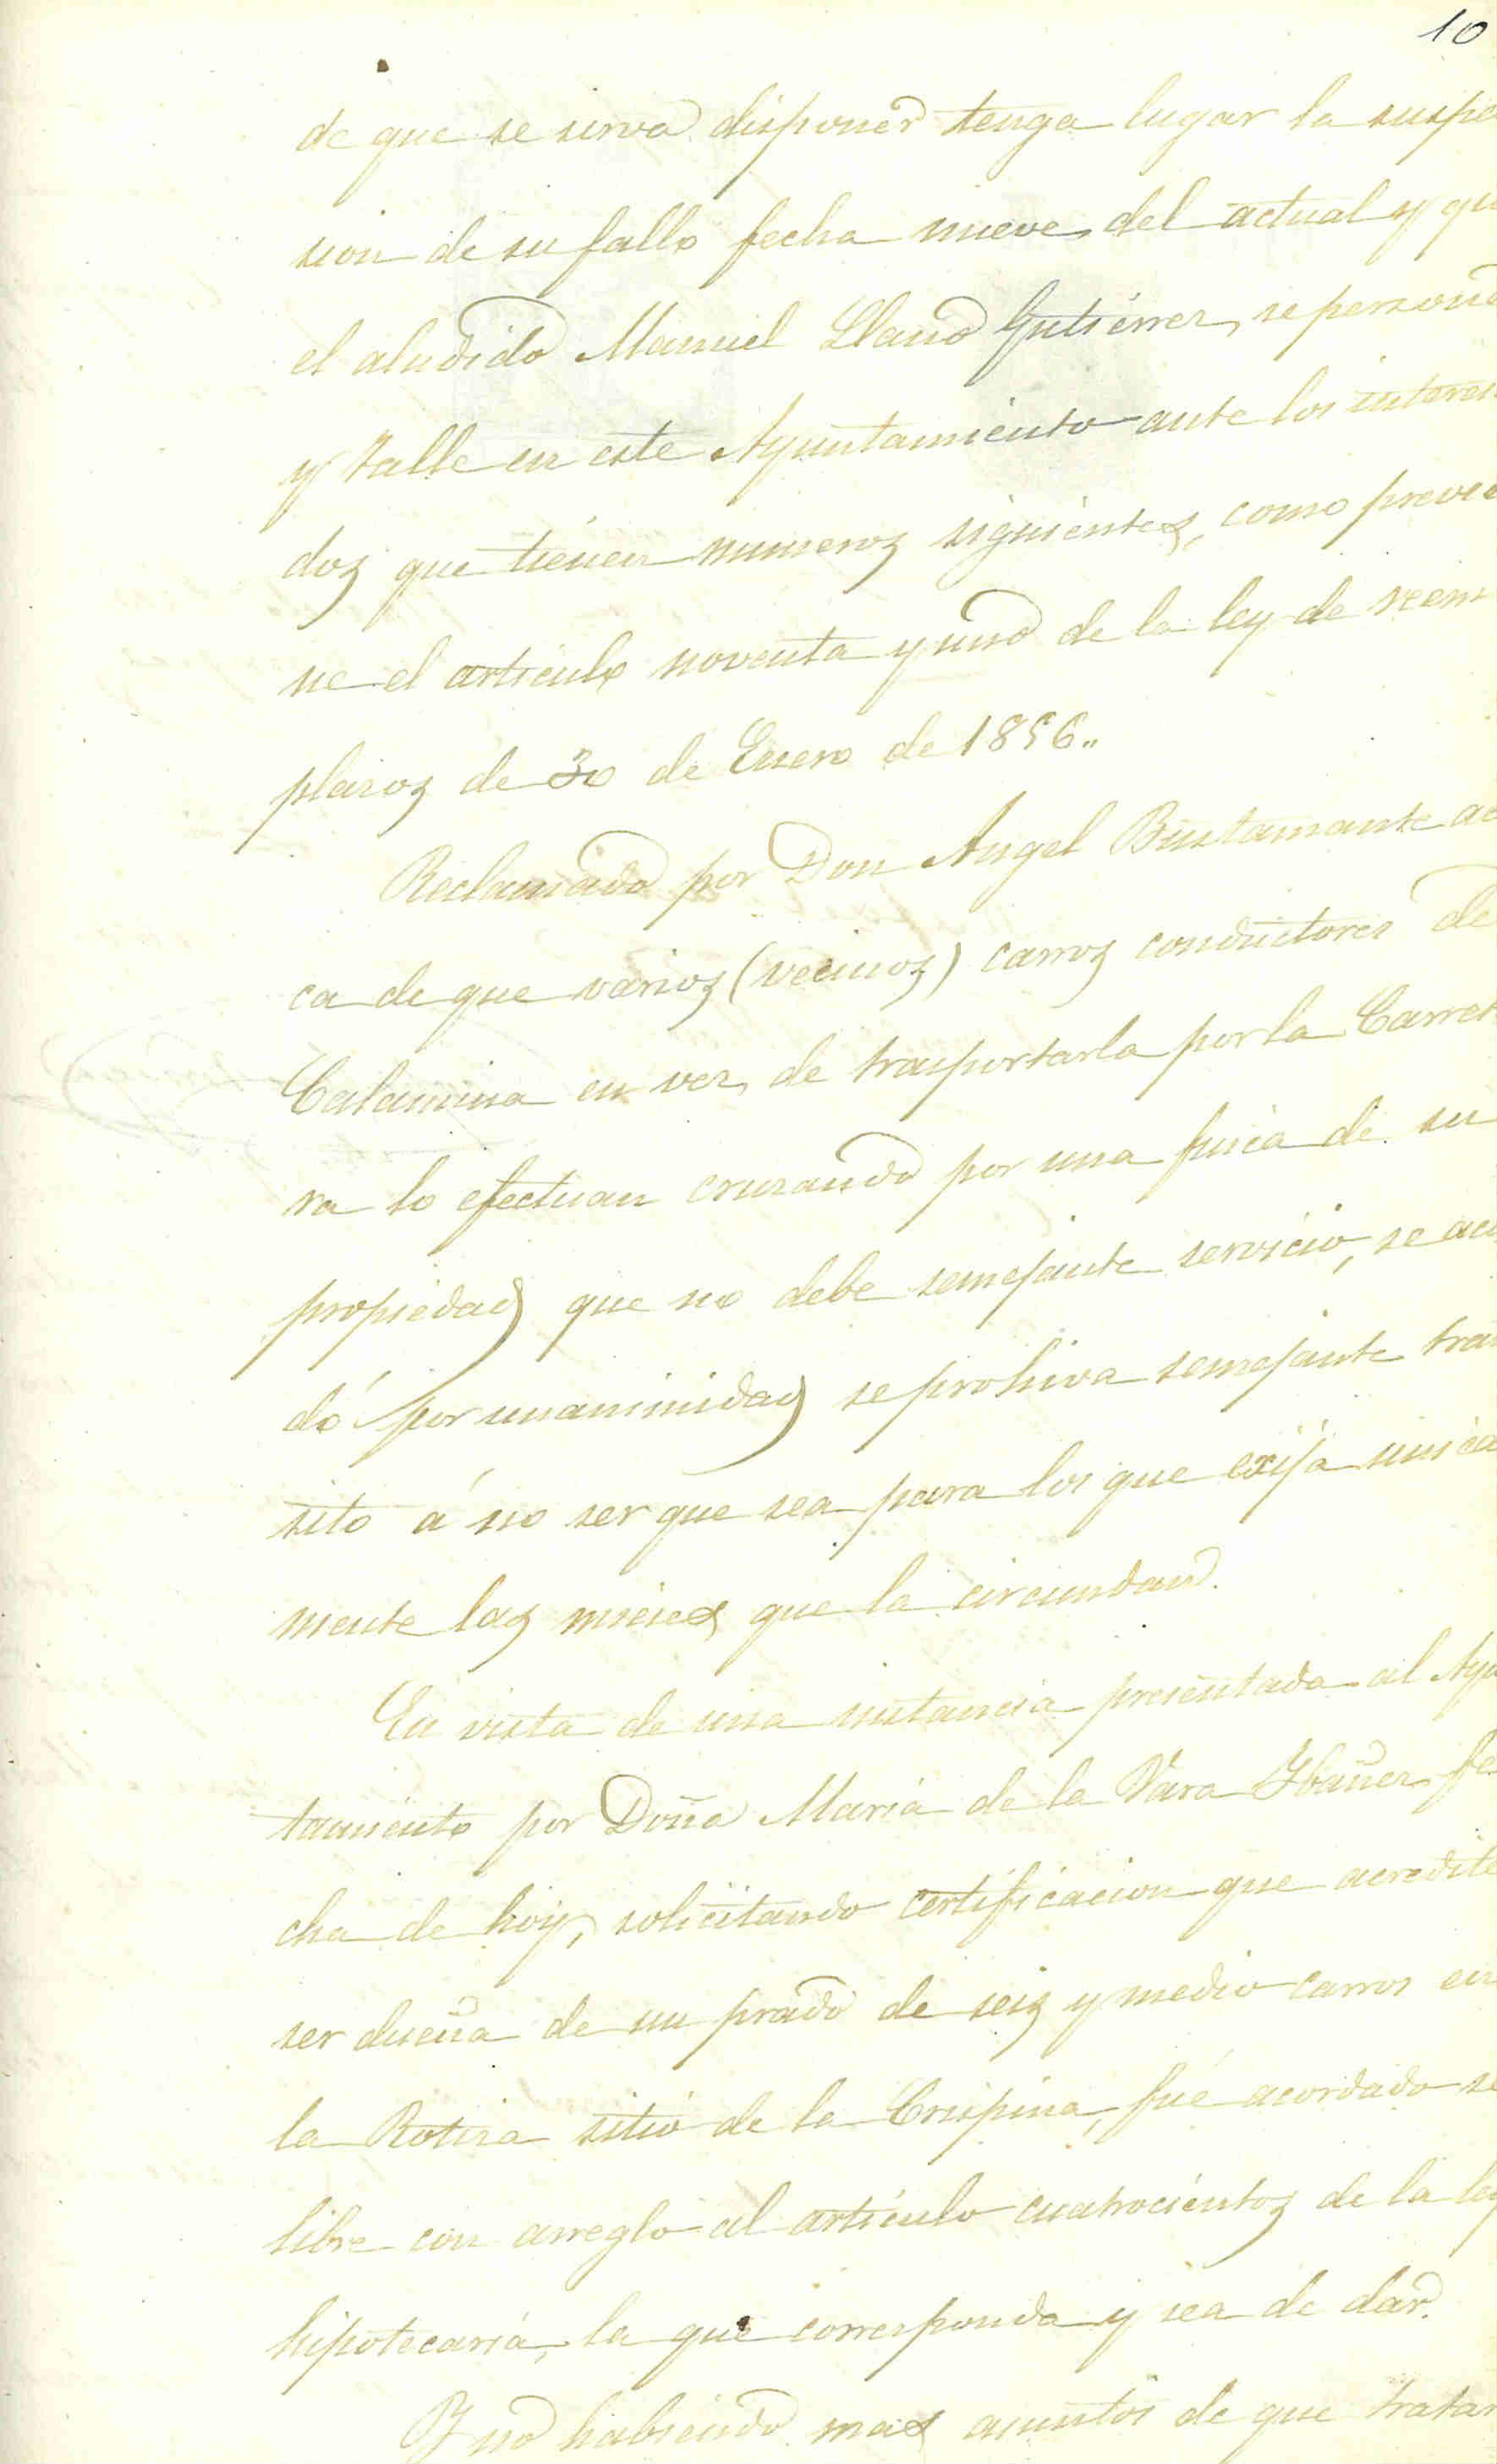 10
de que se sirva disponer tenga lugar la suspe
sion de su fallo fecha nueve del actual y qu
el aludido Manuel Llano Gutiérrez, se persone
y talle en este Ayuntamiento ante los interesa
dos que tienen numeros siguientes, como previe
ne el artículo noventa y uno de la ley de reem
plazos de 30 de Enero de 1856..
Reclamado por Don Angel Bustamante acer
ca de que varios (vecinos) carros conductores de
Calamina en vez de trasportarla por la Carrete
ra lo efectuan cruzando por una finca de su
propiedad que no debe semejante servicio, se acor
dó por unanimidad se prohiva semejante tran
sito á no ser que sea para los que exija unica
mente las mieses que la circundan.
En vista de una instancia presentada al Ayu
tamiento por Doña María de la Vara Ybañez fe
cha de hoy, solicitando certificacion que acredite
ser dueña de un prado de seis y medio carros en
la Rotiza sitio de la Crispina, fué acordado se
libre con arreglo al artículo cuatrocientos de la ley
hipotecaria, la que corresponda y sea de dar.
Y no habiendo mas asuntos de que tratar